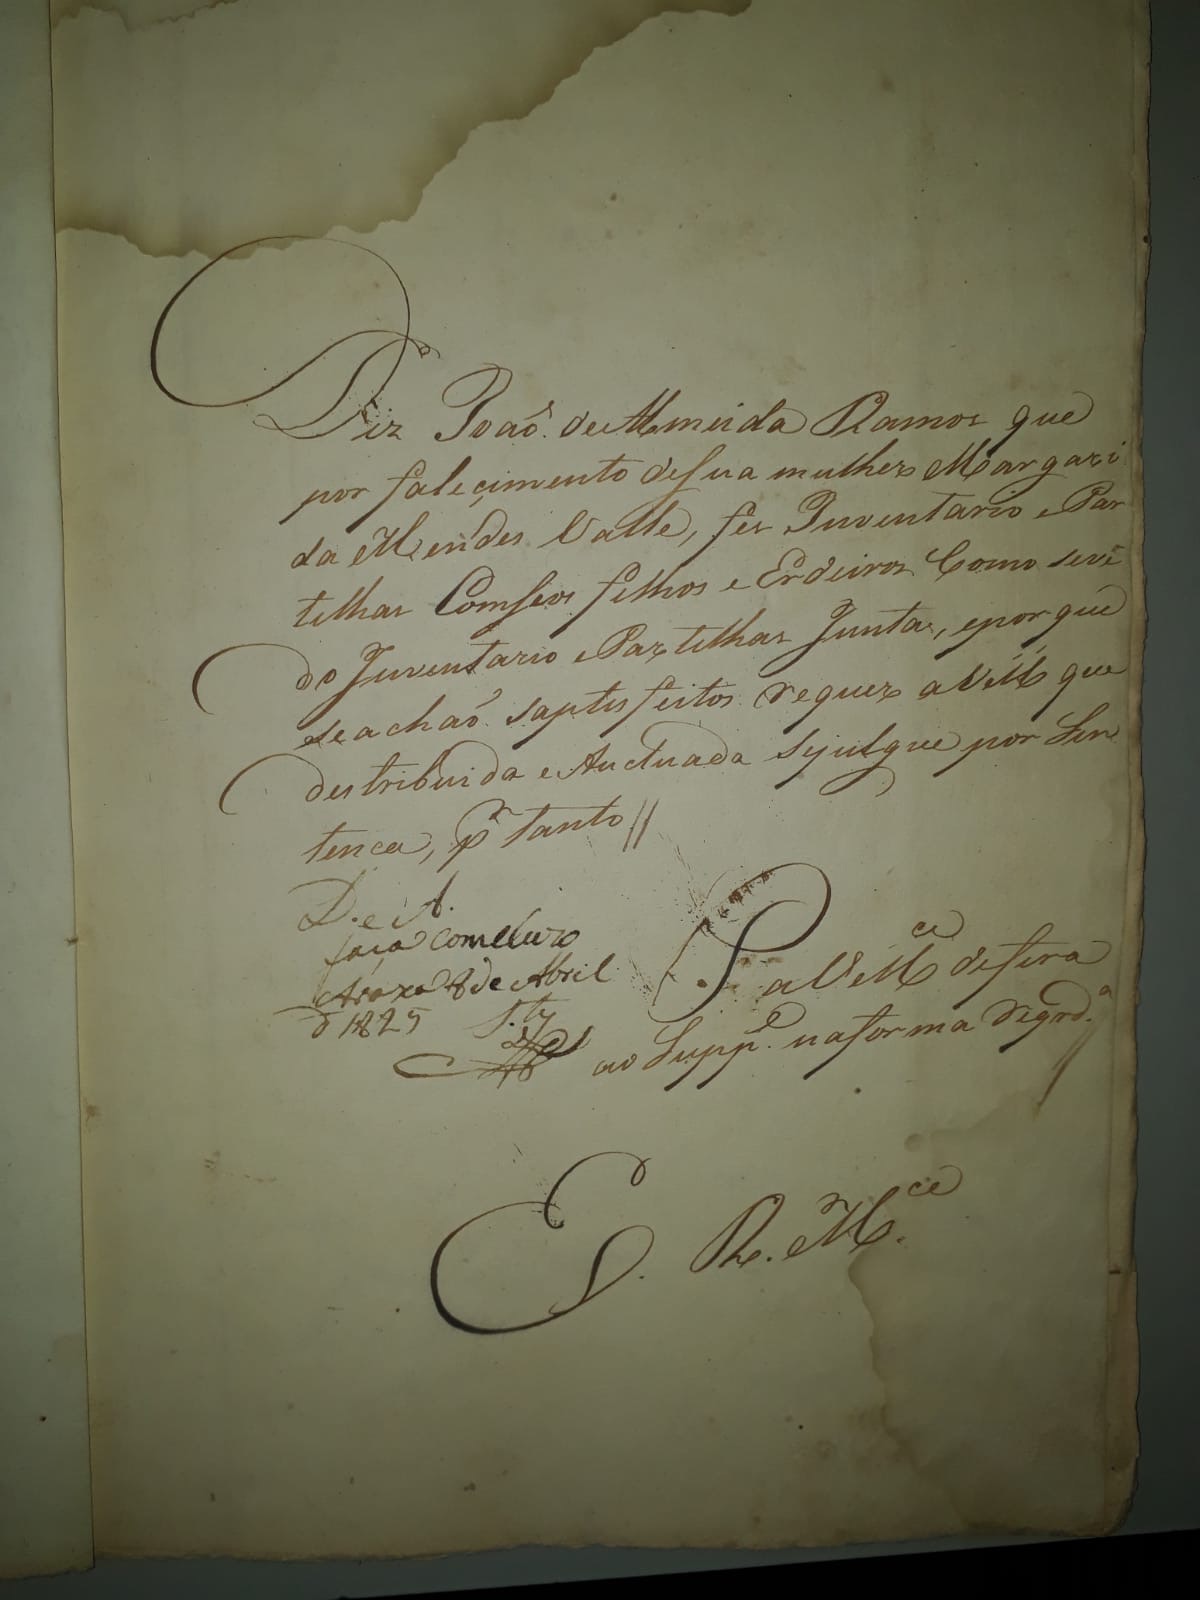 Diz Joaõ de Almeida Ramos que
por faleçimento desua mulher Margari
da Mendes Valle, fes Inventario e Par
tilhas Comseos filhos e Erdeiros Como sevê
do Inventario e Partilhas Junta, eporque
seachaõ saptisfeitos requer aVM que
destribuida e Auctuada sejulgue por Sen
tenca, pr tanto //
D. e A.
faça concluzo
Araxa 8 de Abril
d 1825
P. aVMce defira
ao Suppe. naforma reqrda
E. R. Mce.